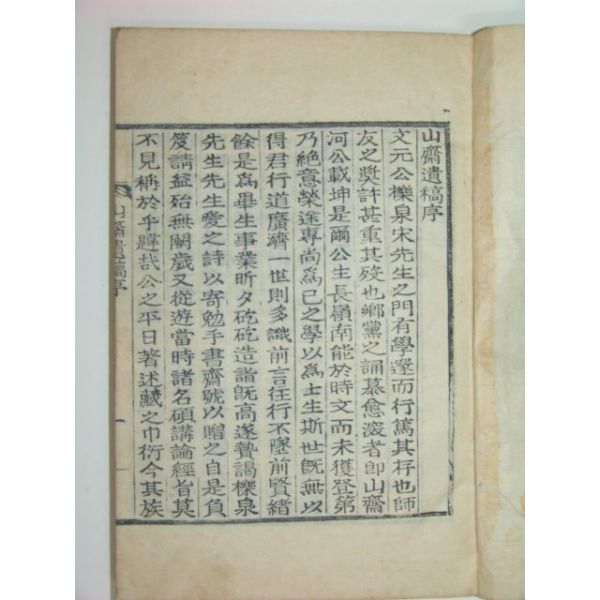 山齋遺稿序
文元公櫟泉宋先生之門有學邃而行篤其存也師
友之奬許甚重其歿也鄕黨之誦慕愈深者卽山齋
河公載坤是爾公生長嶺南能於時文而未獲登第
乃絶意榮途專尙爲己之學以爲士生斯世旣無以
得君行道廣濟一世則多識前言往行不墜前賢緖
餘是爲畢生事業昕夕矻矻造詣旣高遂贄謁櫟泉
先生先生愛之詩以寄勉手書齋號以贈之自是負
笈請益殆無闕歲又從遊當時諸名碩講論經旨莫
不見稱於乎韙哉公之平日著述藏之巾衍今其族
山齋遺稿序
一